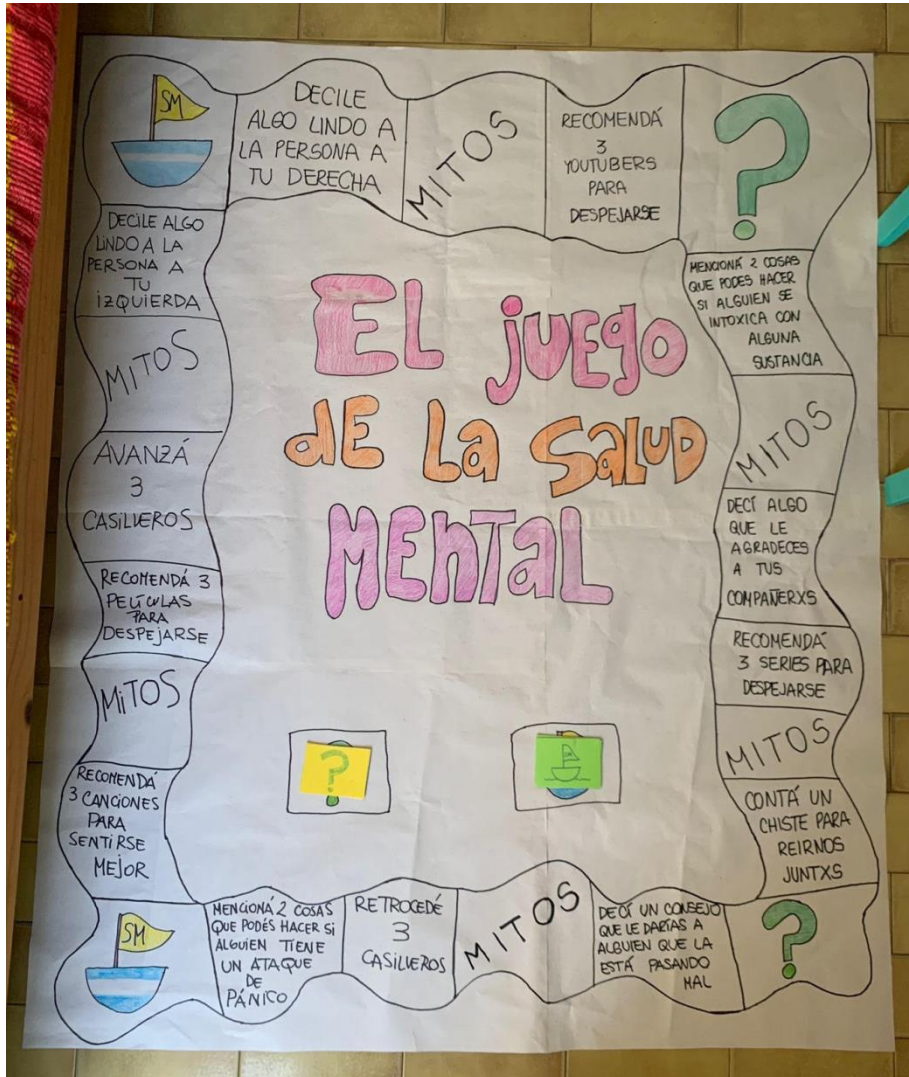 SM
DECILE
ALGO LINDO A
LA PERSONA A
TU DERECHA
MITOS
RECOMENDÁ
3
YOUTUBERS
PARA
DESPEJARSE
?
MENCIONÁ 2 COSAS
QUE PODES HACER
SI ALGUIEN SE
INTOXICA CON
ALGUNA
SUSTANCIA
MITOS
DECÍ ALGO
QUE LE
AGRADECES
A TUS
COMPAÑERXS
RECOMENDÁ
3 SERIES PARA
DESPEJARSE
MITOS
CONTÁ UN
CHISTE PARA
REIRNOS
JUNTXS
?
DECÍ UN CONSEJO
QUE LE DARÍAS A
ALGUIEN QUE LA
ESTÁ PASANDO
MAL
MITOS
RETROCEDÉ
3
CASILLEROS
MENCIONÁ 2 COSAS
QUE PODÉS HACER SI
ALGUIEN TIENE
UN ATAQUE
DE
PÁNICO
SM
RECOMENDÁ
3 CANCIONES
PARA
SENTIRSE
MEJOR
MITOS
RECOMENDÁ 3
PELÍCULAS
PARA
DESPEJARSE
AVANZÁ
3
CASILLEROS
MITOS
DECILE ALGO
LINDO A LA
PERSONA A
TU
IZQUIERDA
EL juEgo
dE La SaLUD
MEnTaL
?